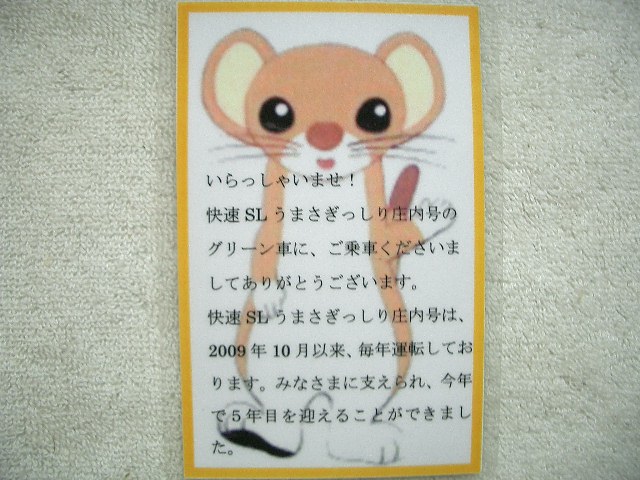 いらっしゃいませ！
快速 SL うまさぎっしり庄内号の
グリーン車に、ご乗車くださいま
してありがとうございます。
快速 SL うまさぎっしり庄内号は、
2009 年 10 月以来、毎年運転してお
ります。みなさまに支えられ、今年
で５年目を迎えることができまし
た。